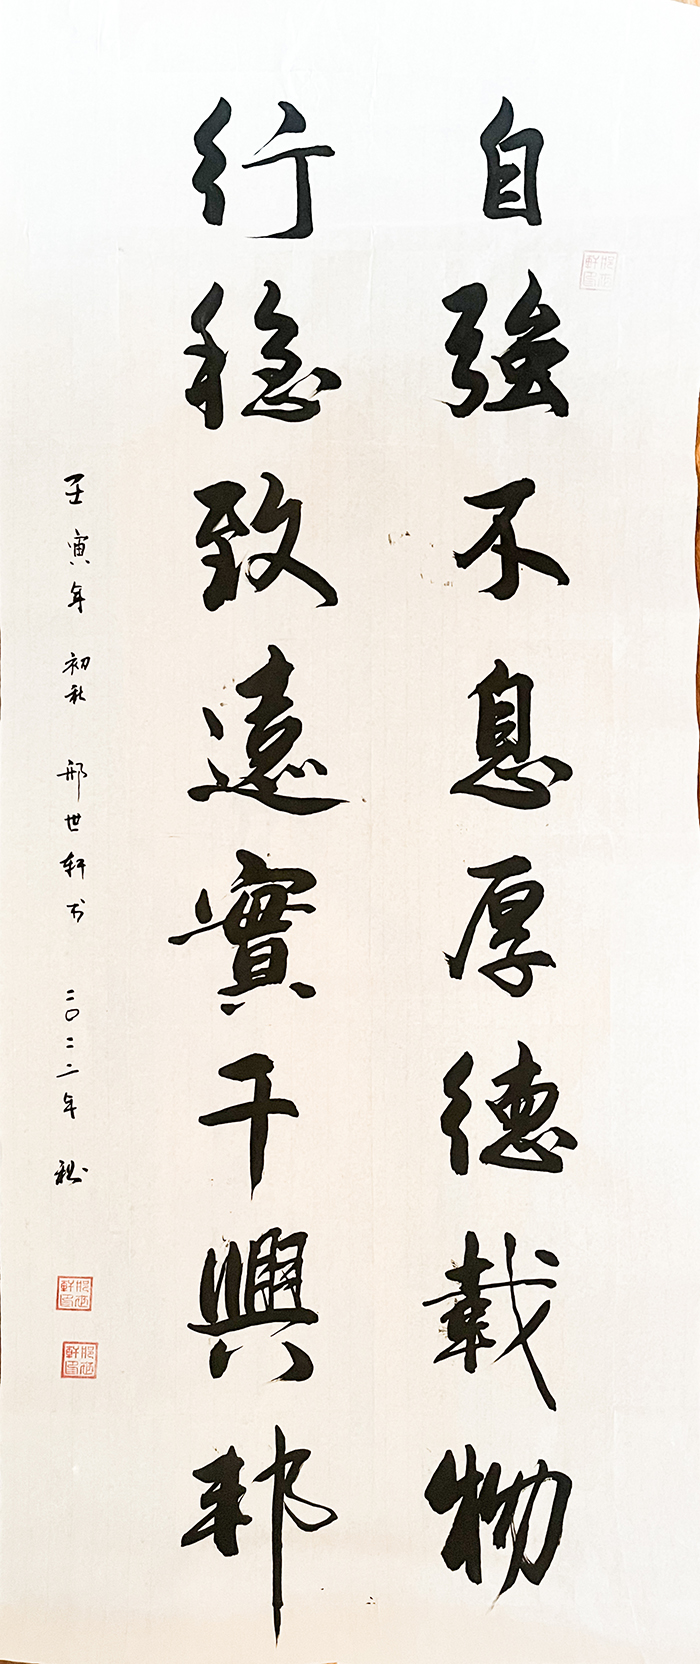 自強不息厚德載物
行穩致遠實干興邦
壬寅年 初秋 邢世軒书 二〇二二年 秋